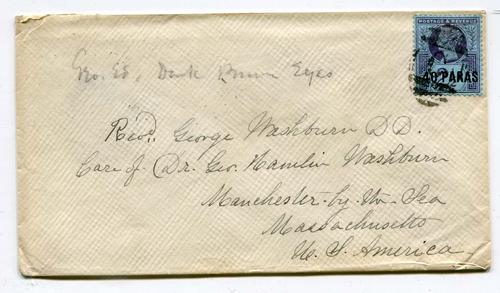 POSTAGE & REVENUE
40 PARAS
Geo. Ed. Dark Brown Eyes
Revd. George Washburn D.D.
Care of Dr. Geo. Hamlin Washburn
Manchester-by-the-Sea
Massachusetts
U. S. America